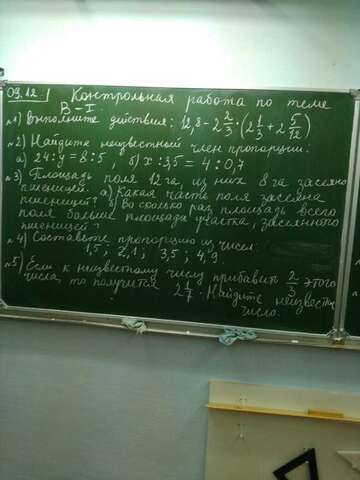 09.12. Контрольная работа по теме
В-I.
№1) Выполните действия: 12,8 - 2 2/3 · (2 1/3 + 2 5/12)
№2) Найдите неизвестный член пропорции:
а) 24 : у = 8 : 5, б) х : 3,5 = 4 : 0,7
№3) Площадь поля 12 га, из них 8 га засеяно
пшеницей. а) Какая часть поля засеяна
пшеницей? б) Во сколько раз площадь всего
поля больше площади участка, засеянного
пшеницей?
№4) Составьте пропорцию из чисел:
1,5 ; 2,1 ; 3,5 ; 4,9.
№5) Если к неизвестному числу прибавить 2/3 этого
числа, то получится 2 1/7. Найдите неизвестн
число.